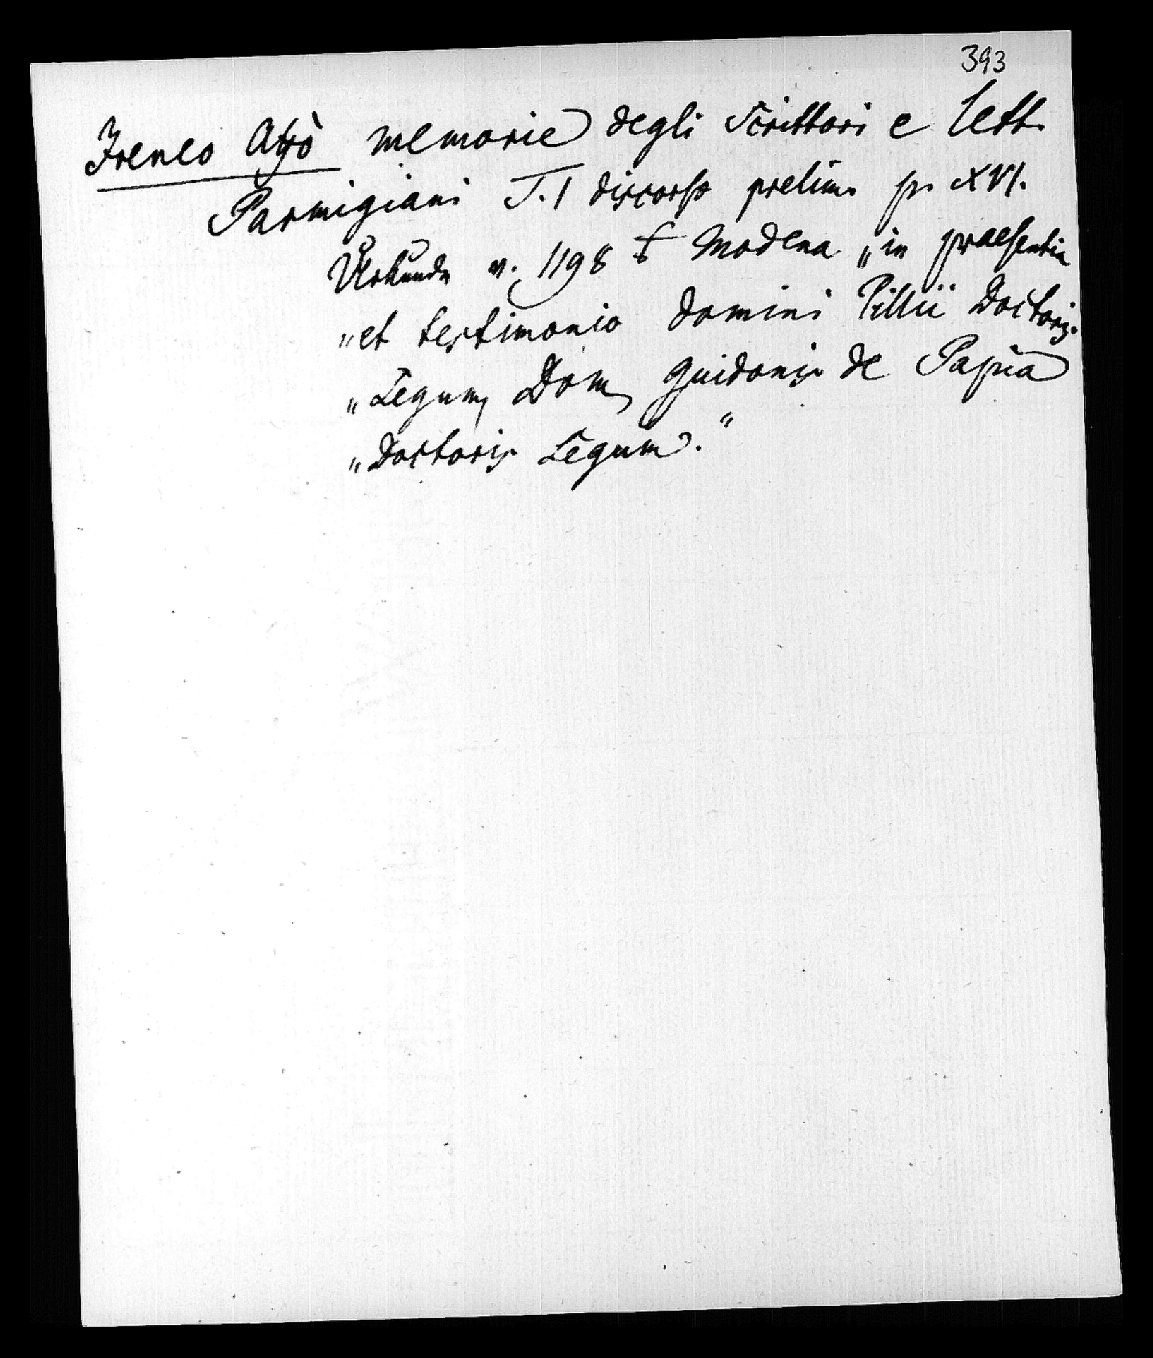 393
Ireneo Affò memorie degli Scrittori e lett.
Parmigiani T. I discorso prelim. p. XVI.
Urkunde v. 1198 Modena „in praesentia
„et testimonio domini Pillii Doctoris
„Legum, Dom, Guidonis de Papia
„Doctoris Legum."